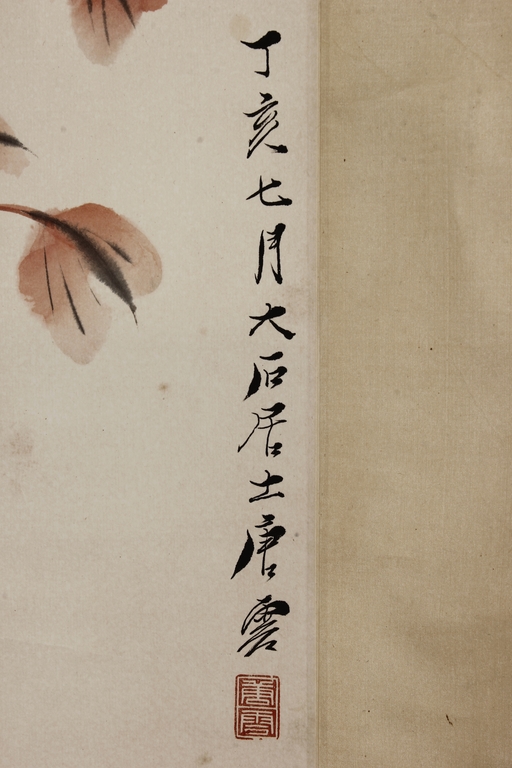 丁亥七月大石居士唐雲
唐雲